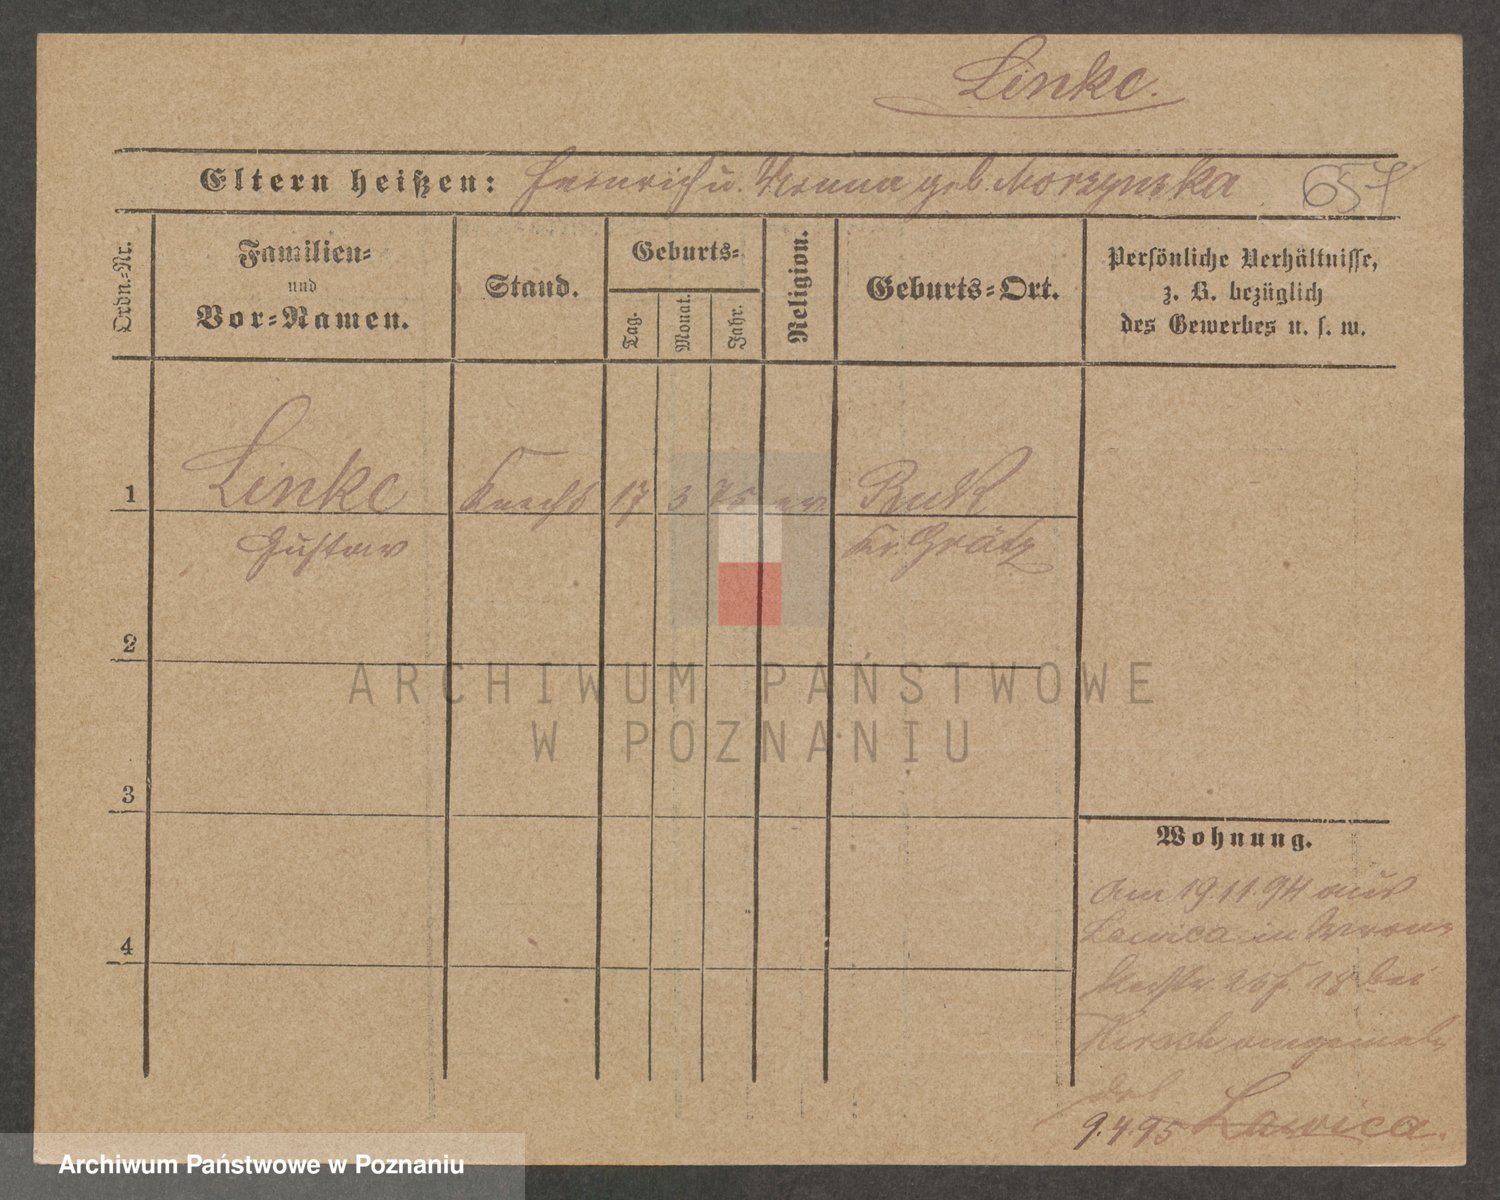 Linke.
Eltern heißen: Heinrich u. geb. Morzynska 657
Ordn.-Nr.
Familien-
und
Vor-Namen.
Stand.
Geburts-
Tag.
Monat.
Jahr.
Religion.
Geburts-Ort.
Persönliche Verhältnisse,
z. B. bezüglich
des Gewerbes u. s. w.
1 Linke Knecht 17 3 75 ev. Buk
Gustav Kr. Grätz
2
3
4
Wohnung.
Am 19.11.94 aus
Lawica in Wron-
bei
Hirsch angemel-
det
9.4.95 Lawica.
ARCHIWUM PAŃSTWOWE
W POZNANIU
Archiwum Państwowe w Poznaniu